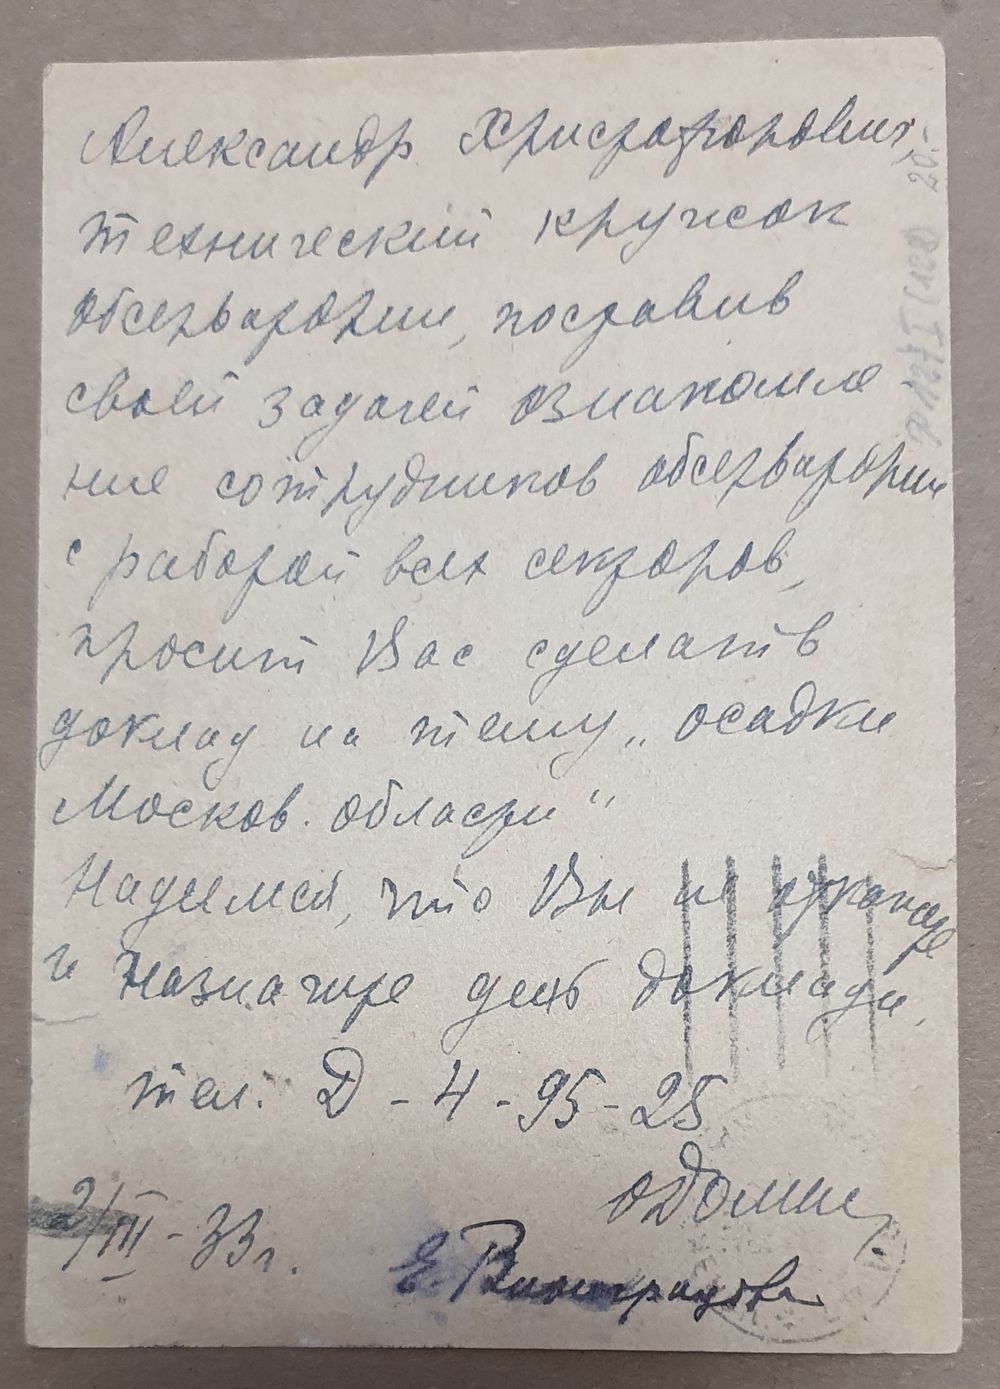 Александр Христофорович,
технический кружок
обсерватории, поставив
своей задачей ознакомле
ние сотрудников обсерватории
с работой всех секторов,
просит Вас сделать
доклад на тему „осадки
Москов. области"
Надеимся, что Вы не откажете
и назначите день доклада.
тел. Д-4-95-25
2/III-33г.
Е. Виноградова